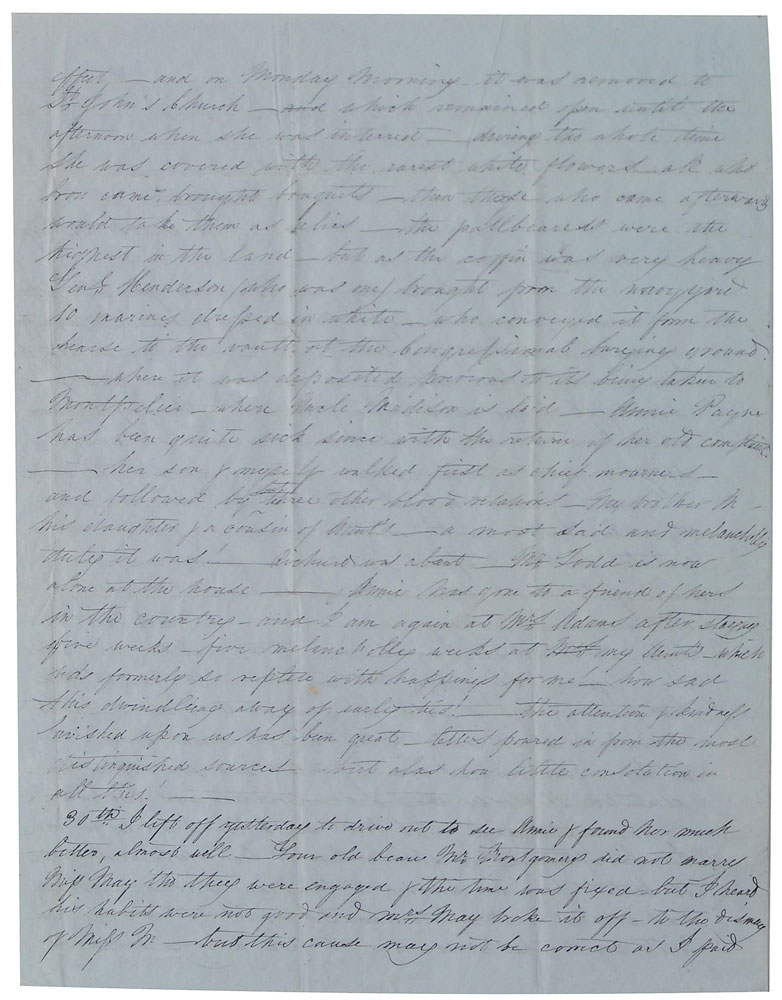 effect — and on Monday Morning it was removed to
St John's Church — and which remained open until the
afternoon when she was interred — during the whole time
she was covered with the rarest white flowers — all who
came brought bouquets — then those who came afterwards
would take them as relics — the pallbearers were the
highest in the land — but as the coffin was very heavy
Genl Henderson (who was one) brought from the navy yard
10 marines dressed in white — who conveyed it form the
hearse to the vault at the Congressional burying ground
— where it was deposited previous to its being taken to
Montpelier — where Uncle Madison is laid — Annie Payne
has been quite sick since with the return of her old complaint
— her son & myself walked first as chief mourners —
and followed by three other blood relations — My brother M —
his daughter & a cousin of Aunt's — a most sad and melancholly
duty it was! — Richard was absent — Mr Todd is now
alone at the house — Annie has gone to a friend of hers
in the country — and I am again at Mrs Adams after staying
five weeks — five melancholly weeks at my Aunt's — which
was formerly so replete with happings for me — how sad
this dwindling away of early ties! — The attention & kindness
lavished upon us has been great — letters poured in from the most
distinguished sources — but alas how little consolation in
all this! —
30th I left off yesterday to drive out to see Annie & found her much
better, almost well — Your old beau Mr Montgomery did not marry
Miss May tho they were engaged & the time was fixed — but I heard
his habits were not good and Mrs May broke it off — to the dismay
of Miss M — but this cause may not be correct as I paid